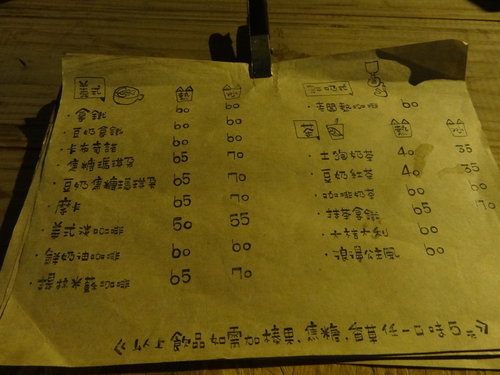 義式 熱 冰
·拿鐵 60 60
·豆奶拿鐵 60 60
·卡布奇諾 60 60
·焦糖瑪琪朵 65 70
·豆奶焦糖瑪琪朵 65 70
·摩卡 65 70
·美式咖啡 50 55
·鮮奶油咖啡 60 60
·提拉米蘇咖啡 65 70
熱咖啡 60
茶 熱 冰
奶茶 40 35
·豆奶紅茶 40 35
·咖啡奶茶 60 70
·抹茶拿鐵 65
60
·浪漫公主風 60
飲品如需加榛果、焦糖、香草任一口味